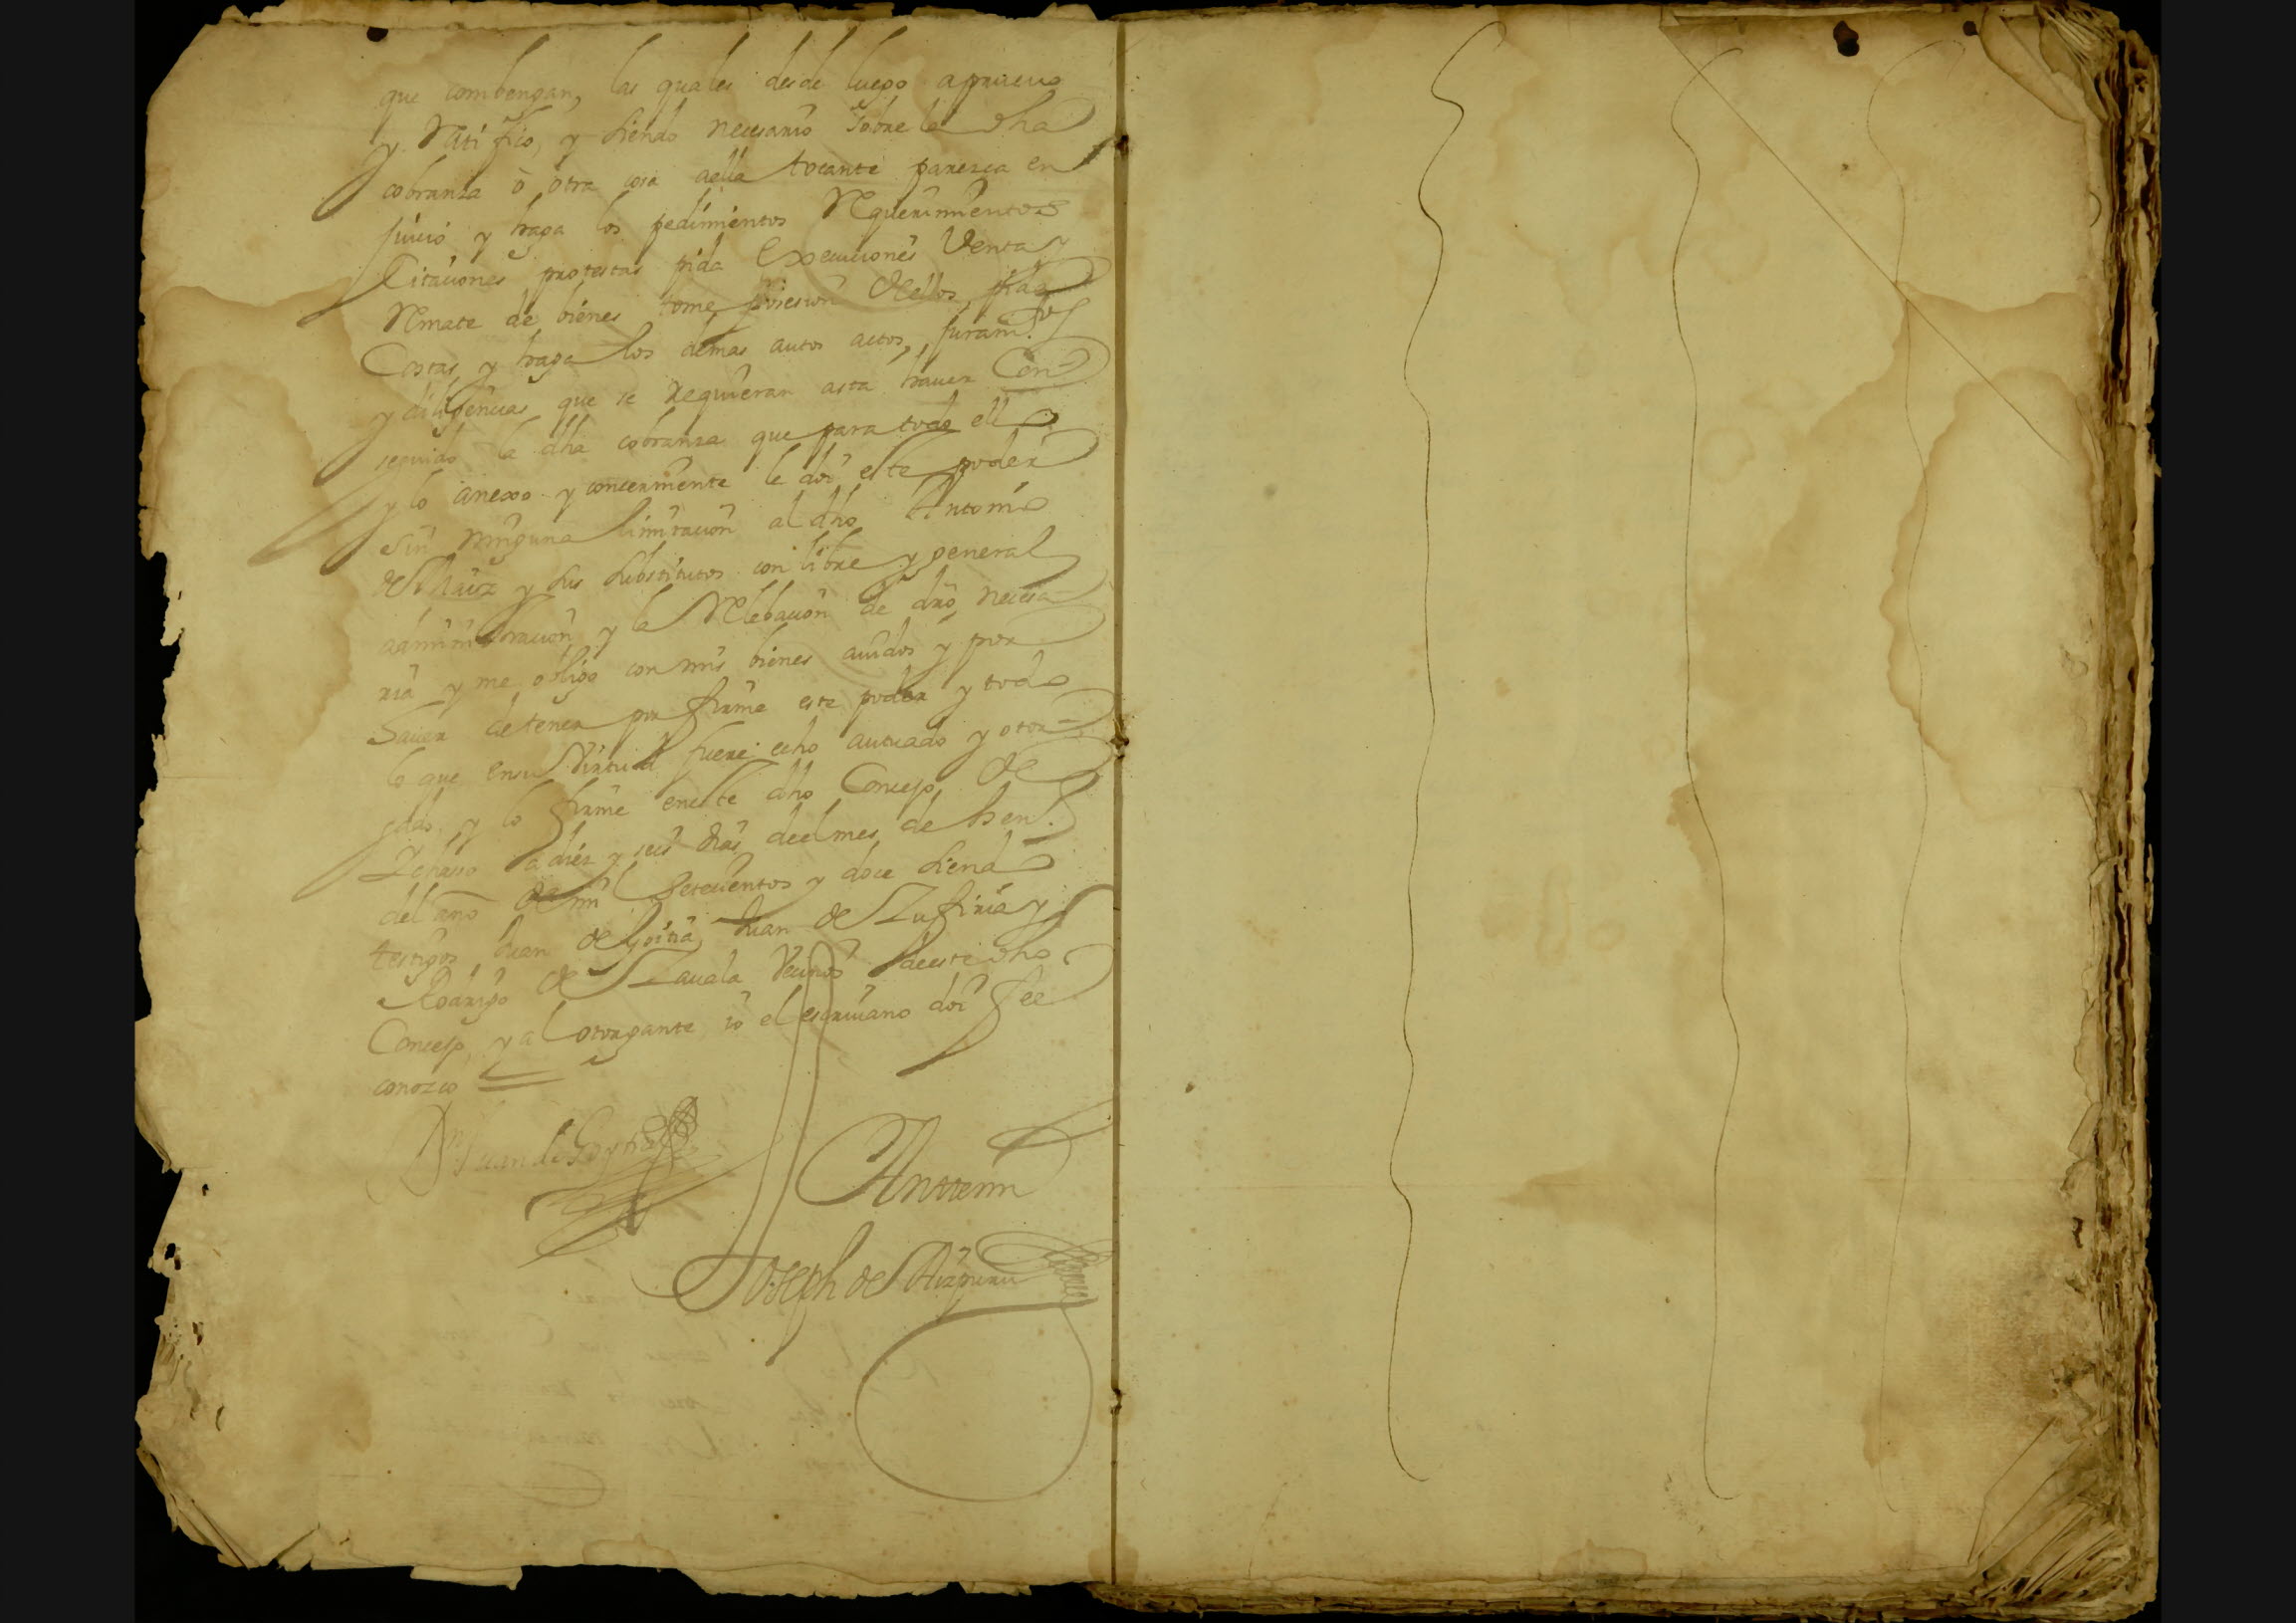 que combengan, las quales desde luego aprueuo
y Ratifico, y siendo necesario sobre la dha
cobranza ò otra cosa aella tocante paresca en
juicio y haga los pedimientos Requerimientos
Citaciones protestas pida Execuciones Venta y
Remate de bienes tome posesion dellos, pida
Costas y haga los demas autos actos, juram.tos
y diligencias que se requieran asta hauer Con-
seguido la dha cobranza que para todo ello
y lo anexo y concerniente le doi este poder
sin ninguna limitacion al dho Antonio
de y sus substitutos con libre y general
administracion y la Relebacion de dro necesa-
ria y me obligo con mis bienes auidos y por
hauer de tener por firme este poder y todo
lo que ensu Virtud fuere echo autuado y otor-
gado, y lo firme eneste dho Concejo de
a diez y seis dias deel mes de hen.o
del año de mil Setecientos y doce siendo
testigos Juan de Goitia, Juan de y
Rodrigo de Zauala Vecinos deeste dho
Concejo, y al otorgante io el escriuano doi fee
conozco
Dn Juan de Goytia
Antemi
Joseph de Aizpuru